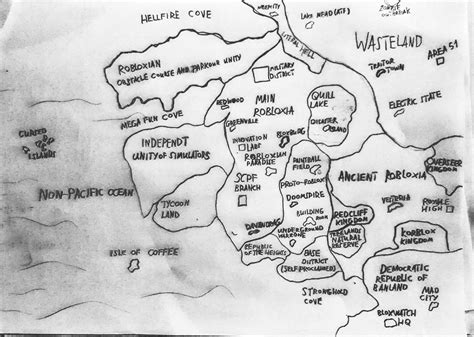 HELLFIRE COVE
LAKE MEAD (ATF)
ZOMBIE
OUTBREAK
LITERAL HELL
WASTELAND
AREA 51
TRAITOR
TOWN
ROBLOXIAN
OBSTACLE COURSE AND PARKOUR UNITY
MILITARY
DISTRICT
ELECTRIC STATE
MEGA FUN COVE
REDWOOD
GREENVILLE
MAIN
ROBLOXIA
QUILL
LAKE
DISASTER
ISLAND
CURSED
ISLANDS
INDEPENDT
UNITY OF SIMULATORS
INNOVATION
LABS
BLOXBURG
ROBLOXIAN
PARADISE
PAINTBALL
FIELD
OVERSEER
KINGDOM
NON-PACIFIC OCEAN
TYCOON
LAND
SCPF
BRANCH
PROTO-ROBLOX
DOOMSPIRE
BUILDING
ANCIENT ROBLOXIA
VESTERIA
ROYALE
HIGH
REDCLIFF
KINGDOM
UNDERGROUND
WARZONE
TREELANDS
NATURAL
RESERVE
KORBLOX
KINGDOM
ISLE OF COFFEE
REPUBLIC
OF THE HEIGHTS
BASE
DISTRICT
(SELF PROCLAIMED)
DEMOCRATIC
REPUBLIC OF
BANLAND
STRONGHOLD
COVE
MAD
CITY
BLOXWATCH
HQ